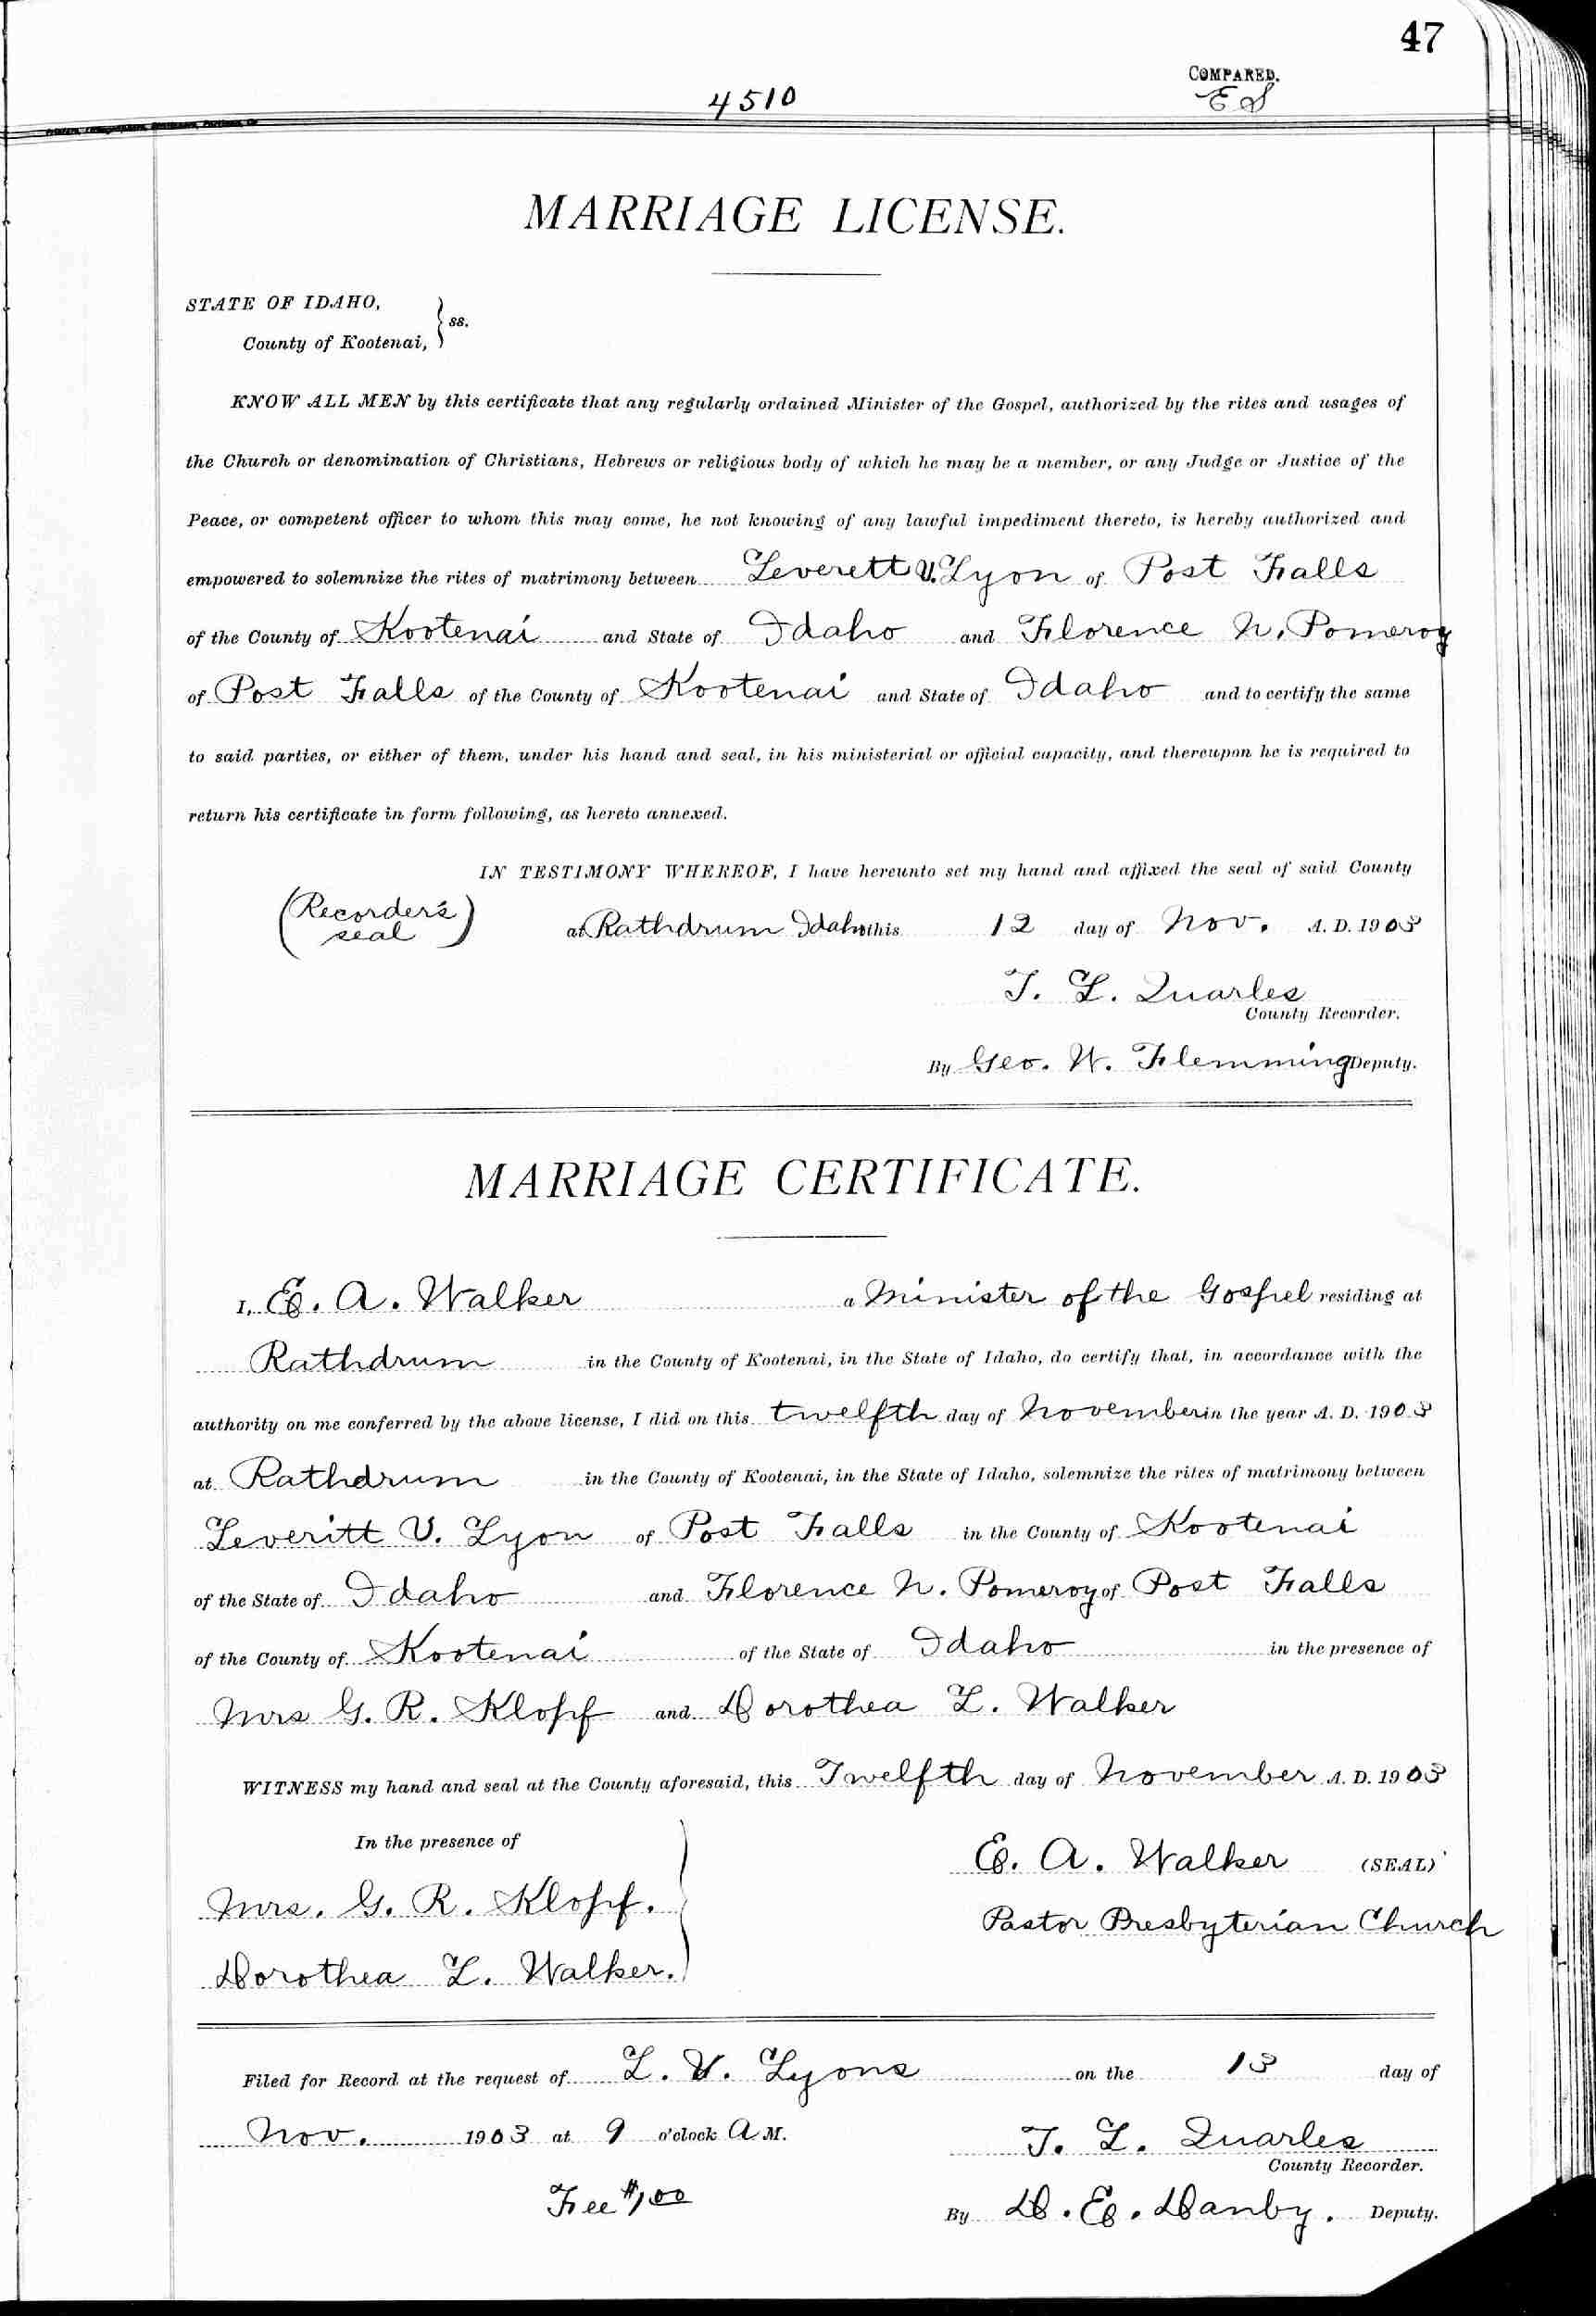 47
COMPARED.
4510
ES
MARRIAGE LICENSE.
STATE OF IDAHO,
ss.
County of Kootenai,
KNOW ALL MEN by this certificate that any regularly ordained Minister of the Gospel, authorized by the rites and usages of
the Church or denomination of Christians, Hebrews or religious body of which he may be a member, or any Judge or Justice of the
Peace, or competent officer to whom this may come, he not knowing of any lawful impediment thereto, is hereby authorized and
empowered to solemnize the rites of matrimony between Leverett V. Lyon of Post Falls
of the County of Kootenai and State of Idaho and Florence N. Pomeroy
of Post Falls of the County of Kootenai and State of Idaho and to certify the same
to said parties, or either of them, under his hand and seal, in his ministerial or official capacity, and thereupon he is required to
return his certificate in form following, as hereto annexed.
IN TESTIMONY WHEREOF, I have hereunto set my hand and affixed the seal of said County
(Recorder's seal) at Rathdrum Idaho this 12 day of Nov. A. D. 1903
T. L. Quarles
County Recorder.
By Geo. W. Flemming Deputy.
MARRIAGE CERTIFICATE.
I, E. A. Walker a Minister of the Gospel residing at
Rathdrum in the County of Kootenai, in the State of Idaho, do certify that, in accordance with the
authority on me conferred by the above license, I did on this twelfth day of November in the year A. D. 1903
at Rathdrum in the County of Kootenai, in the State of Idaho, solemnize the rites of matrimony between
Leveritt V. Lyon of Post Falls in the County of Kootenai
of the State of Idaho and Florence N. Pomeroy of Post Falls
of the County of Kootenai of the State of Idaho in the presence of
Mrs G. R. Klopf and Dorothea L. Walker
WITNESS my hand and seal at the County aforesaid, this Twelfth day of November A. D. 1903
In the presence of
E. A. Walker (SEAL)
Mrs. G. R. Klopf.
Pastor Presbyterian Church
Dorothea L. Walker.
Filed for Record at the request of L. V. Lyons on the 13 day of
Nov. 1903 at 9 o'clock A M.
T. L. Quarles
County Recorder.
Fee $1.00
By D. E. Danby. Deputy.